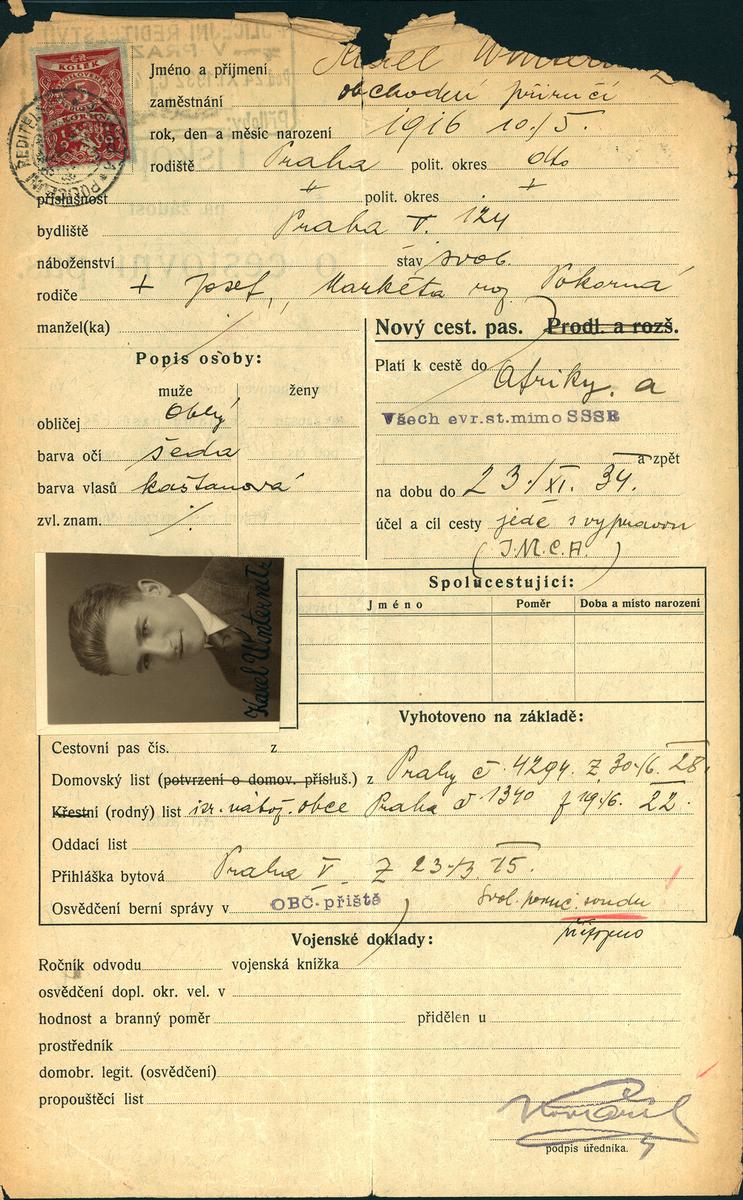 Jméno a příjmení Karel
zaměstnání obchodní příručí
rok, den a měsíc narození 1916 10/5.
rodiště Praha polit. okres dto
příslušnost + polit. okres +
bydliště Praha V. 124
náboženství stáv svob.
rodiče + Josef, Markéta roz. Pokorná
manžel(ka) /
Nový cest. pas. Prodl. a rozš.
Popis osoby:
muže ženy
obličej Oblý
barva očí šedá
barva vlasů kaštanová
zvl. znam. ·/.
Platí k cestě do Afriky. a
Všech evr.st.mimo SSSR
a zpět
na dobu do 23./XI. 34.
účel a cíl cesty jede s výpravou
(I.M.C.A.)
Karel Winternitz
Spolucestující:
Jméno Poměr Doba a místo narození
Vyhotoveno na základě:
Cestovní pas čís. z
Domovský list (potvrzení o domov. přísluš.) z Prahy č. 4294. Z 30./6. 28.
Křestní (rodný) list isr. nábož. obce Praha č 1340 19./6. 22.
Oddací list
Přihláška bytová Praha V Z 23./3. 15.
Osvědčení berní správy v OBČ. příště Svol. soudu
připojeno
Vojenské doklady:
Ročník odvodu vojenská knížka
osvědčení dopl. okr. vel. v
hodnost a branný poměr přidělen u
prostředník
domobr. legit. (osvědčení)
propouštěcí list
podpis úředníka.